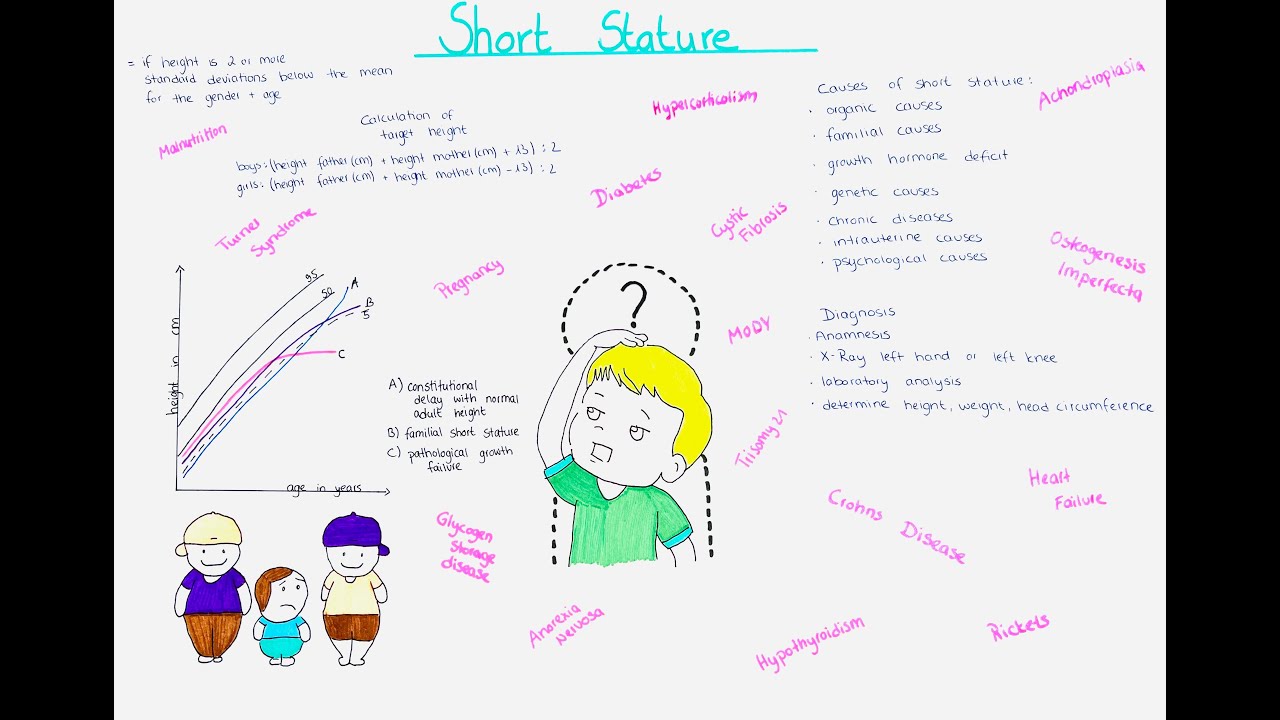 Short Stature
= if height is 2 or more
standard deviations below the mean
for the gender + age
Malnutrition
Calculation of
target height
boys: (height father (cm) + height mother (cm) + 13) : 2
girls: (height father (cm) + height mother (cm) - 13) : 2
Hypercorticolism
Causes of short stature:
· organic causes
· familial causes
· growth hormone deficit
· genetic causes
· chronic diseases
· intrauterine causes
· psychological causes
Achondroplasia
Turner
Syndrome
Diabetes
Cystic
Fibrosis
Osteogenesis
Imperfecta
Pregnancy
height in cm
95
50
A
B
5
C
age in years
A) constitutional
delay with normal
adult height
B) familial short stature
C) pathological growth
failure
?
MODY
Diagnosis
· Anamnesis
· X-Ray left hand or left knee
· laboratory analysis
· determine height, weight, head circumference
Trisomy 21
Glycogen
storage
disease
Crohns Disease
Heart
Failure
Anorexia
Nervosa
Hypothyroidism
Rickets